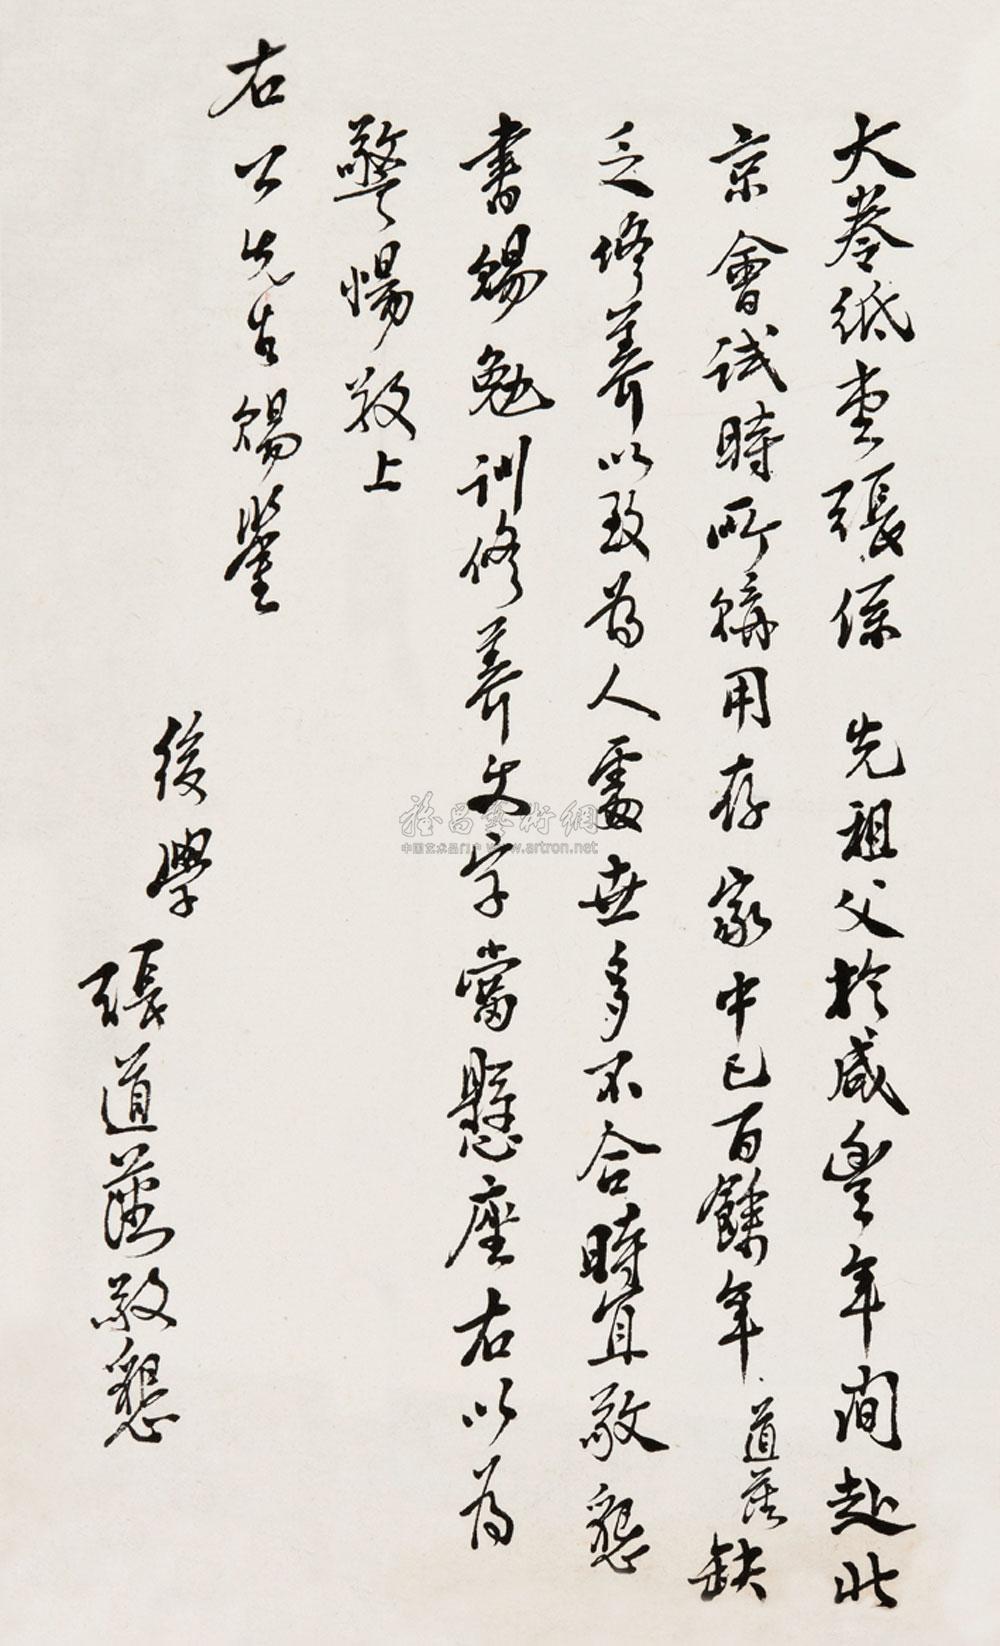 大卷紙壹張係 先祖父於咸豐年間赴北
京會試時所購用存 家中已百餘年 道藩缺
乏修養以致為人處世多不合時宜敬懇
書賜勉訓修養文字當懸座右以為
警惕敬上
右公先生賜鑒
後學
張道藩敬懇
雅昌藝術網
中国艺术品门户 www.artron.net